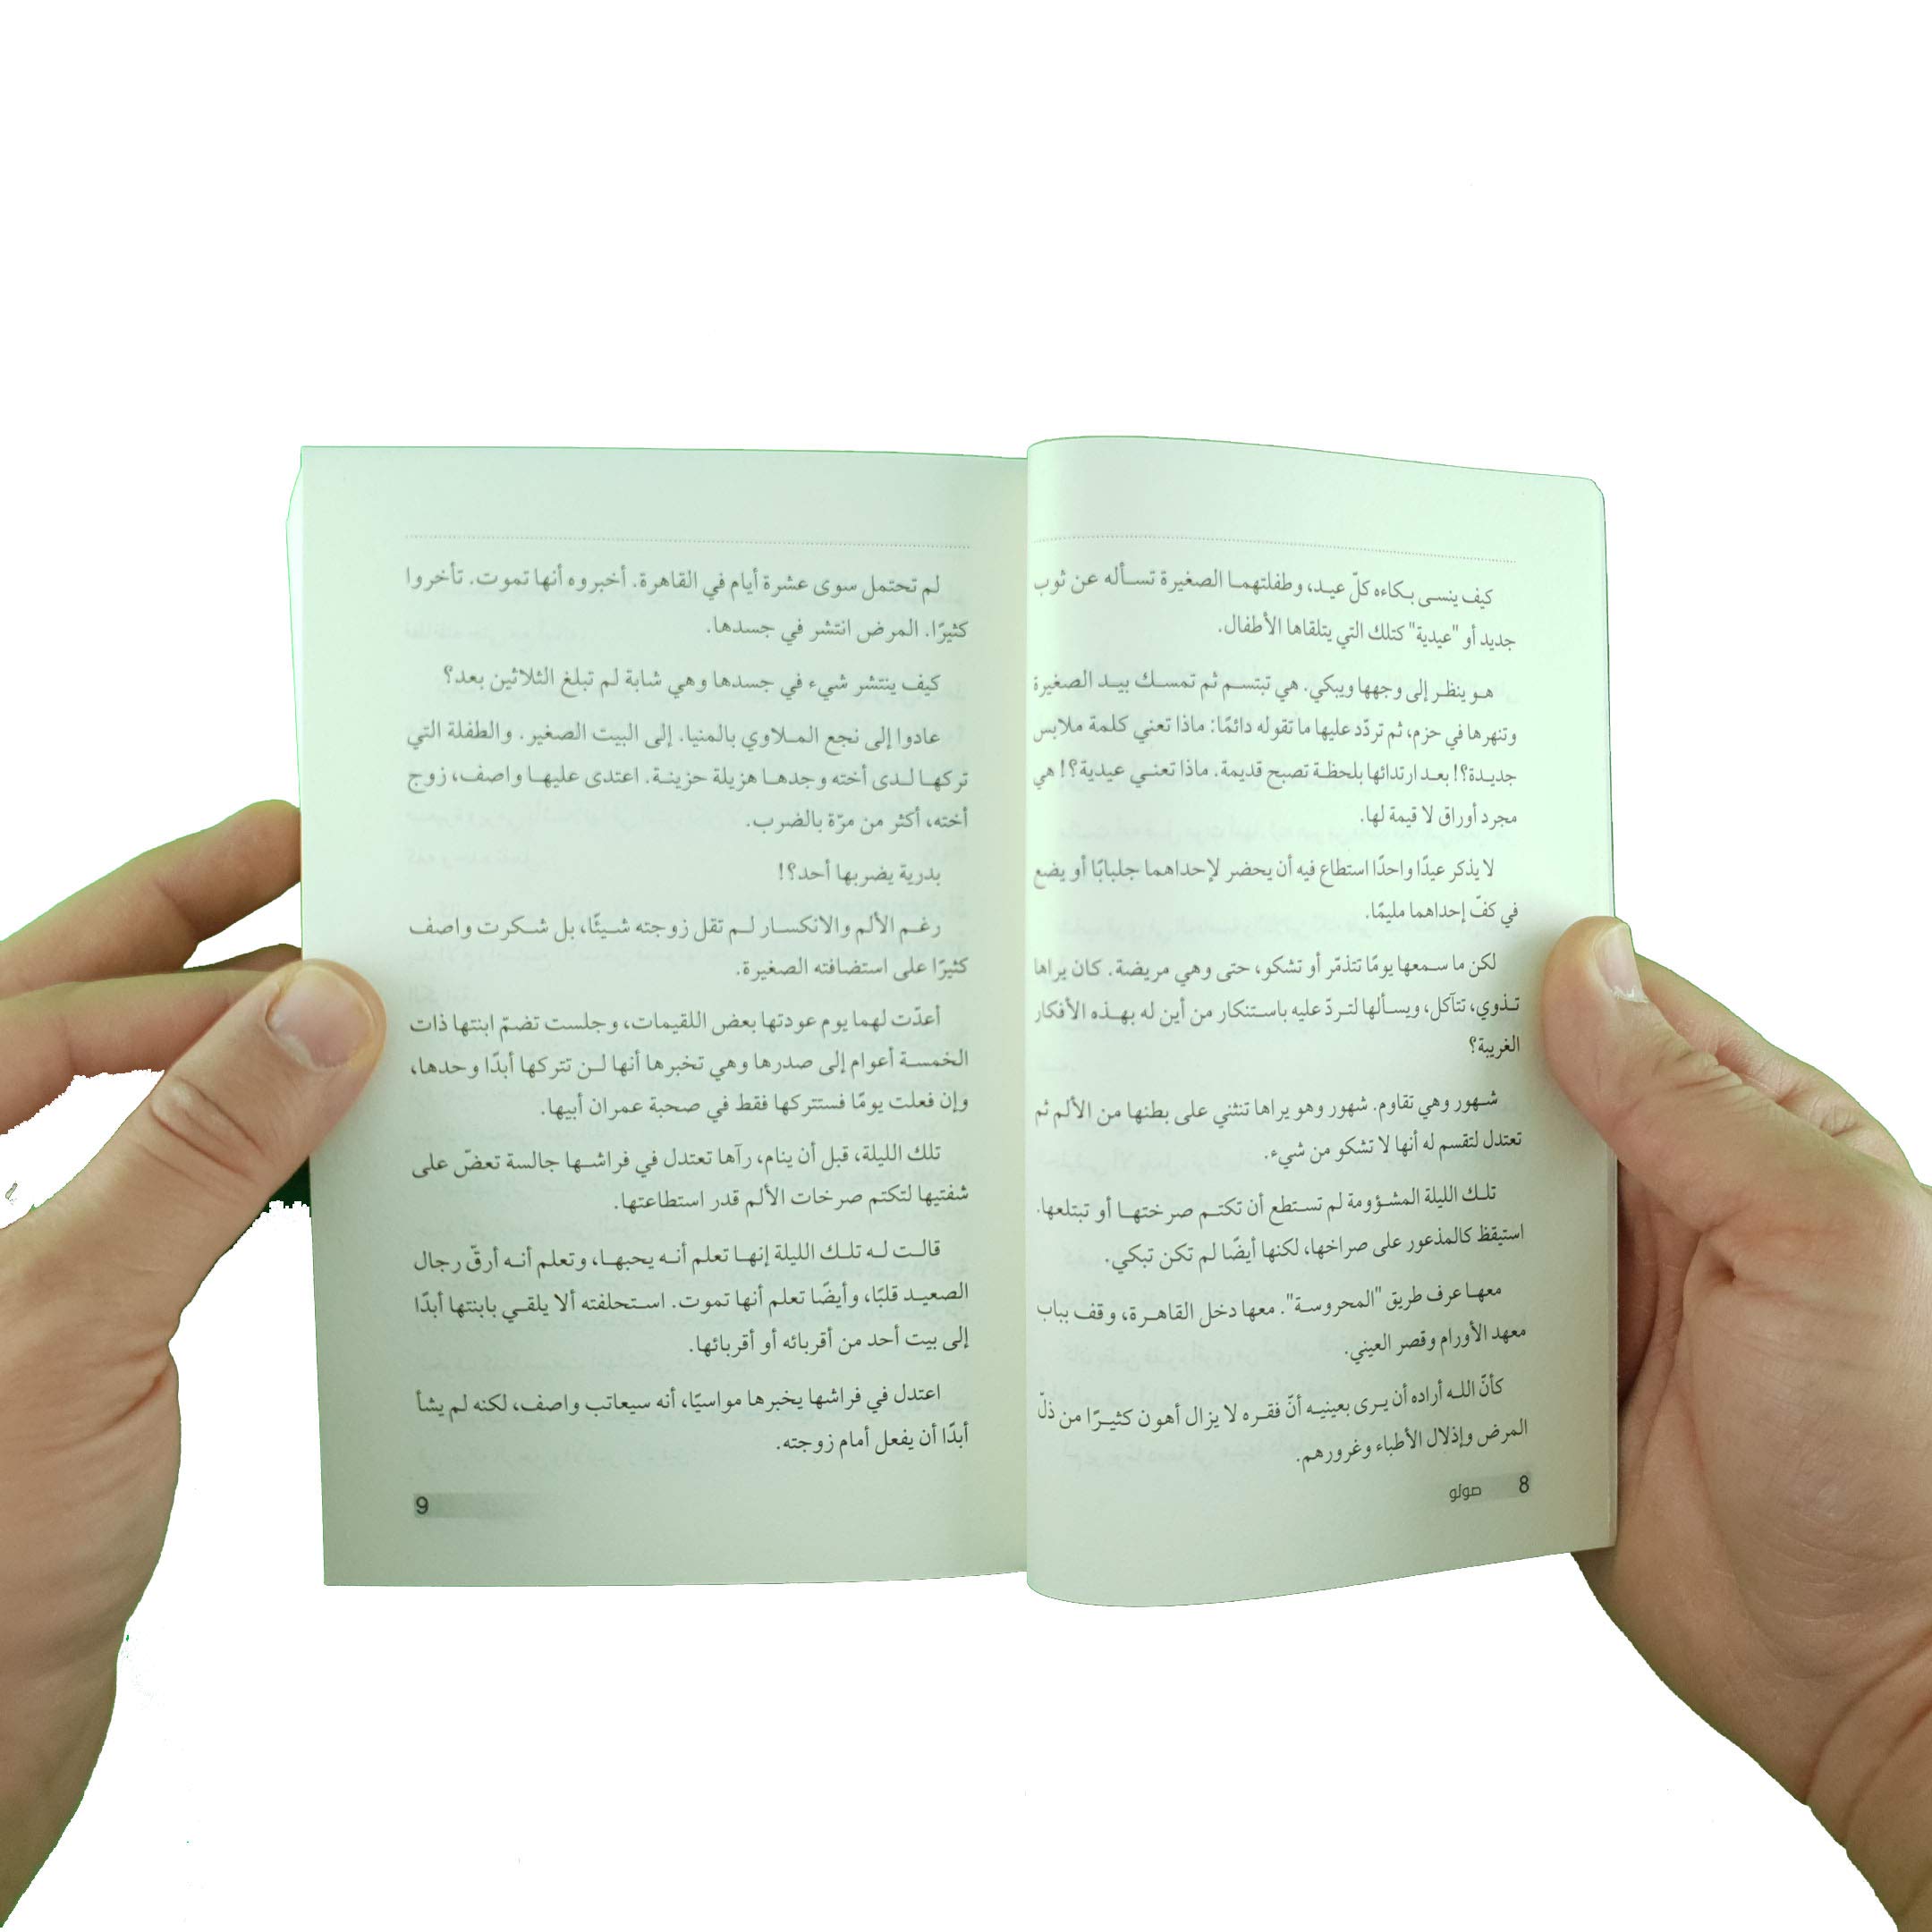 كيف ينسى بكاءه كلّ عيد، وطفلتهما الصغيرة تسأله عن ثوب
جديد أو "عيدية" كتلك التي يتلقاها الأطفال.
هو ينظر إلى وجهها ويبكي. هي تبتسم ثم تمسك بيد الصغيرة
وتنهرها في حزم، ثم تردّد عليها ما تقوله دائمًا: ماذا تعني كلمة ملابس
جديدة؟! بعد ارتدائها بلحظة تصبح قديمة. ماذا تعني عيدية؟! هي
مجرد أوراق لا قيمة لها.
لا يذكر عيدًا واحدًا استطاع فيه أن يحضر لإحداهما جلبابًا أو يضع
في كفّ إحداهما مليمًا.
لكن ما سمعها يومًا تتذمّر أو تشكو، حتى وهي مريضة. كان يراها
تذوي، تتآكل، ويسألها لتردّ عليه باستنكار من أين له بهذه الأفكار
الغريبة؟
شهور وهي تقاوم. شهور وهو يراها تنثني على بطنها من الألم ثم
تعتدل لتقسم له أنها لا تشكو من شيء.
تلك الليلة المشؤومة لم تستطع أن تكتم صرختها أو تبتلعها.
استيقظ كالمذعور على صراخها، لكنها أيضًا لم تكن تبكي.
معها عرف طريق "المحروسة". معها دخل القاهرة، وقف بباب
معهد الأورام وقصر العيني.
كأنّ الله أراده أن يرى بعينيه أنّ فقره لا يزال أهون كثيرًا من ذلّ
المرض وإذلال الأطباء وغرورهم.
8 صولو
لم تحتمل سوى عشرة أيام في القاهرة. أخبروه أنها تموت. تأخروا
كثيرًا. المرض انتشر في جسدها.
كيف ينتشر شيء في جسدها وهي شابة لم تبلغ الثلاثين بعد؟
عادوا إلى نجع الملاوي بالمنيا. إلى البيت الصغير. والطفلة التي
تركها لدى أخته وجدها هزيلة حزينة. اعتدى عليها واصف، زوج
أخته، أكثر من مرّة بالضرب.
بدرية يضربها أحد؟!
رغم الألم والانكسار لم تقل زوجته شيئًا، بل شكرت واصف
كثيرًا على استضافته الصغيرة.
أعدّت لهما يوم عودتها بعض اللقيمات، وجلست تضمّ ابنتها ذات
الخمسة أعوام إلى صدرها وهي تخبرها أنها لن تتركها أبدًا وحدها،
وإن فعلت يومًا فستتركها فقط في صحبة عمران أبيها.
تلك الليلة، قبل أن ينام، رآها تعتدل في فراشها جالسة تعضّ على
شفتيها لتكتم صرخات الألم قدر استطاعتها.
قالت له تلك الليلة إنها تعلم أنه يحبها، وتعلم أنه أرقّ رجال
الصعيد قلبًا، وأيضًا تعلم أنها تموت. استحلفته ألا يلقي بابنتها أبدًا
إلى بيت أحد من أقربائه أو أقربائها.
اعتدل في فراشها يخبرها مواسيًا، أنه سيعاتب واصف، لكنه لم يشأ
أبدًا أن يفعل أمام زوجته.
9